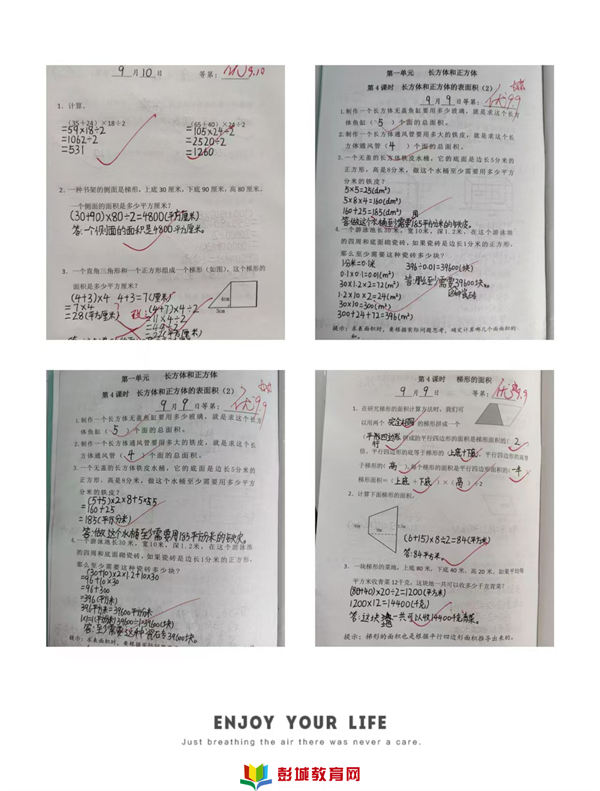 9月10日 等第:
1、计算。
(35+24)×18÷2
=59×18÷2
=1062÷2
=531
(65+40)×24÷2
=105×24÷2
=2520÷2
=1260
2、一种书架的侧面是梯形,上底30厘米,下底90厘米,高80厘米。
一个侧面的面积是多少平方厘米?
(30+90)×80÷2=4800(平方厘米)
答:一个侧面的面积是4800平方厘米。
3、一个直角三角形和一个正方形组成一个梯形(如图),这个梯形的
面积是多少平方厘米?
(4+3)×4 4+3=7(厘米)
=7×4
=28(平方厘米)
(4+7)×4÷2
=11×4÷2
4cm
3cm
第一单元 长方体和正方体
第4课时 长方体和正方体的表面积(2)
9月9日等第: 优9.9
1.制作一个长方体无盖鱼缸要用多少玻璃,就是求这个长方
体鱼缸(5)个面的总面积。
2.制作一个长方体通风管要用多大的铁皮,就是求这个长方
体通风管(4)个面的总面积。
3.一个无盖的长方体铁皮水桶,它的底面是边长5分米的
正方形,高是8分米,做这个水桶至少需要用多少平方
分米的铁皮?
5×5=25(dm²)
5×8×4=160(dm²)
160+25=185(dm²)
答:做这个水桶至少需要用185平方分米的铁皮。
4.一个游泳池长30米,宽10米,深1.2米,在这个游泳池
的四周和底面砌瓷砖,如果瓷砖是边长1分米的正方形,
那么至少需要这种瓷砖多少块?
1分米=0.1米
0.1×0.1=0.01(m²)
30×1.2×2=72(m²)
1.2×10×2=24(m²)
30×10=300(m²)
300+24+72=396(m²)
396÷0.01=39600(块)
答:至少需要39600块。
提示:求表面积时,要根据实际问题思考,确定计算哪几个面面积的
第一单元 长方体和正方体
第4课时 长方体和正方体的表面积(2)
9月9日等第: 优9.9
1.制作一个长方体无盖鱼缸要用多少玻璃,就是求这个长方
体鱼缸(5)个面的总面积。
2.制作一个长方体通风管要用多大的铁皮,就是求这个长方
体通风管(4)个面的总面积。
3.一个无盖的长方体铁皮水桶,它的底面是边长5分米的
正方形,高是8分米,做这个水桶至少需要用多少平方
分米的铁皮?
(5+5)×2×8+5×5
=160+25
=185(平方分米)
答:做这个水桶至少需要用185平方分米的铁皮。
4.一个游泳池长30米,宽10米,深1.2米,在这个游泳池
的四周和底面砌瓷砖,如果瓷砖是边长1分米的正方形,
那么至少需要这种瓷砖多少块?
(30+10)×2×1.2+10×30
=96+10×30
=96+300
=396(平方米)
396平方米=39600平方分米
答:至少需要这种瓷砖39600块。
提示:求表面积时,要根据实际问题
第4课时 梯形的面积
9月9日等第: 优9.9
1、在研究梯形的面积计算方法时,我们可
以用两个完全相同的梯形拼成一个
(平行四边形),拼成的平行四边形的面积是梯形面积的(2)
倍,平行四边形的底等于梯形的(上底+下底),平行四边形的高等
于梯形的(高),每个梯形的面积是平行四边形面积的(一半)
梯形面积=(上底+下底)×(高)÷2
2、计算下面梯形的面积。
(6+15)×8÷2=84(平方米)
答:84平方米。
3、一块梯形的菜地,上底80米,下底40米,高20米,如果平均每
平方米收青菜12千克,这块地一共可以收多少千克青菜?
(80+40)×20÷2=1200(平方米)
1200×12=14400(千克)
答:这块地一共可以收14400千克青菜。
提示:梯形的面积也是根据平行四边形面积推导出来的。
ENJOY YOUR LIFE
Just breathing the air there was never a care.
彭城教育网